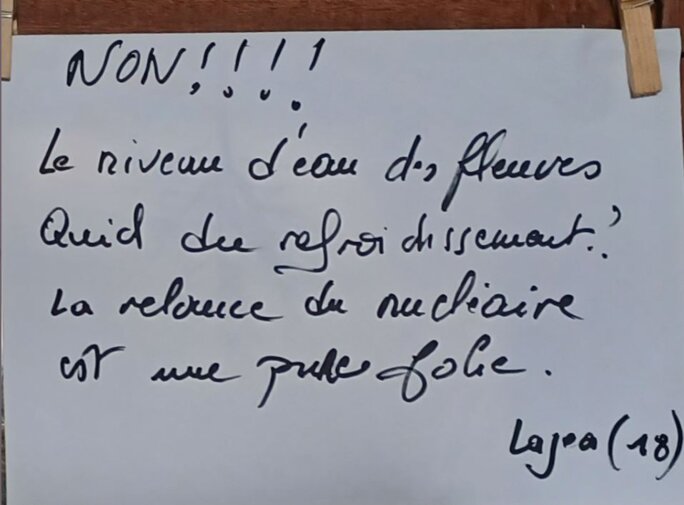 NON!!!!
Le niveau d'eau des fleuves
Quid du refroidissement.?
La relance du nucléaire
est une pure folie.
(18)